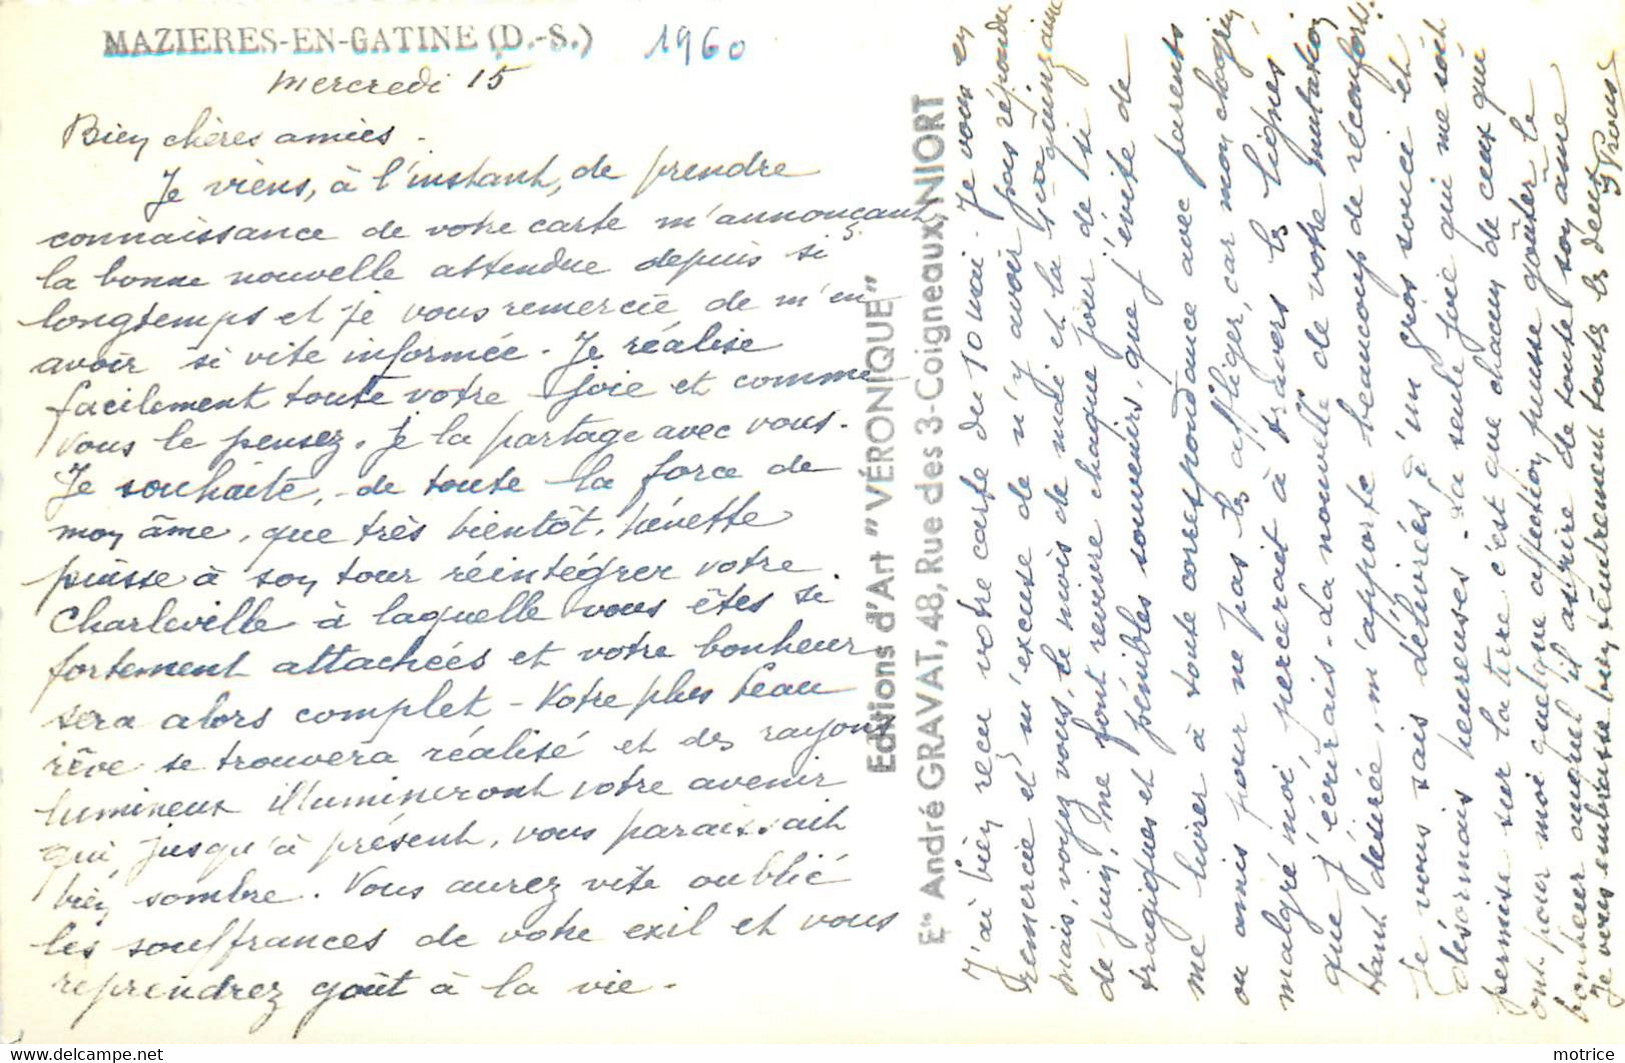 MAZIERES-EN-GATINE (D.-S.) 1960
Mercredi 15
Bien chères amies.
Je viens, à l'instant, de prendre
connaissance de votre carte m'annonçant
la bonne nouvelle attendue depuis si
longtemps et je vous remercie de m'en
avoir si vite informée. Je réalise
facilement toute votre joie et comme
vous le pensez, je la partage avec vous.
Je souhaite, de toute la force de
mon âme, que très bientôt,
puisse à son tour réintégrer votre
Charleville à laquelle vous êtes si
fortement attachées et votre bonheur
sera alors complet - Votre plus beau
rêve se trouvera réalisé et des rayons
lumineux illumineront votre avenir
qui, jusqu'à présent, vous paraissait
bien sombre. Vous aurez vite oublié
les souffrances de votre exil et vous
reprendrez goût à la vie.
Editions d'Art "VÉRONIQUE"
Ets André GRAVAT, 48, Rue des 3-Coigneaux, NIORT
J'ai bien reçu votre carte du 10 mai. Je vous en
remercie et m'excuse de n'y avoir pas répondu
mais, voyez vous, le mois de mai et la 1re quinzaine
de juin, me font revivre chaque jour de si
tragiques et pénibles souvenirs, que j'évite de
me livrer à toute correspondance avec parents
ou amis pour ne pas les affliger, car mon chagrin
malgré moi, percerait à travers les lignes
que j'écrirais. La nouvelle de votre mutation
tant désirée, m'apporte beaucoup de réconfort.
Je vous sais délivrées d'un gros souci et
désormais heureuses. La seule joie qui me soit
permise sur la terre c'est que chacun de ceux qui
ont pour moi quelque affection puisse goûter le
bonheur auquel il aspire de toute son âme
Je vous embrasse bien tendrement toutes les deux